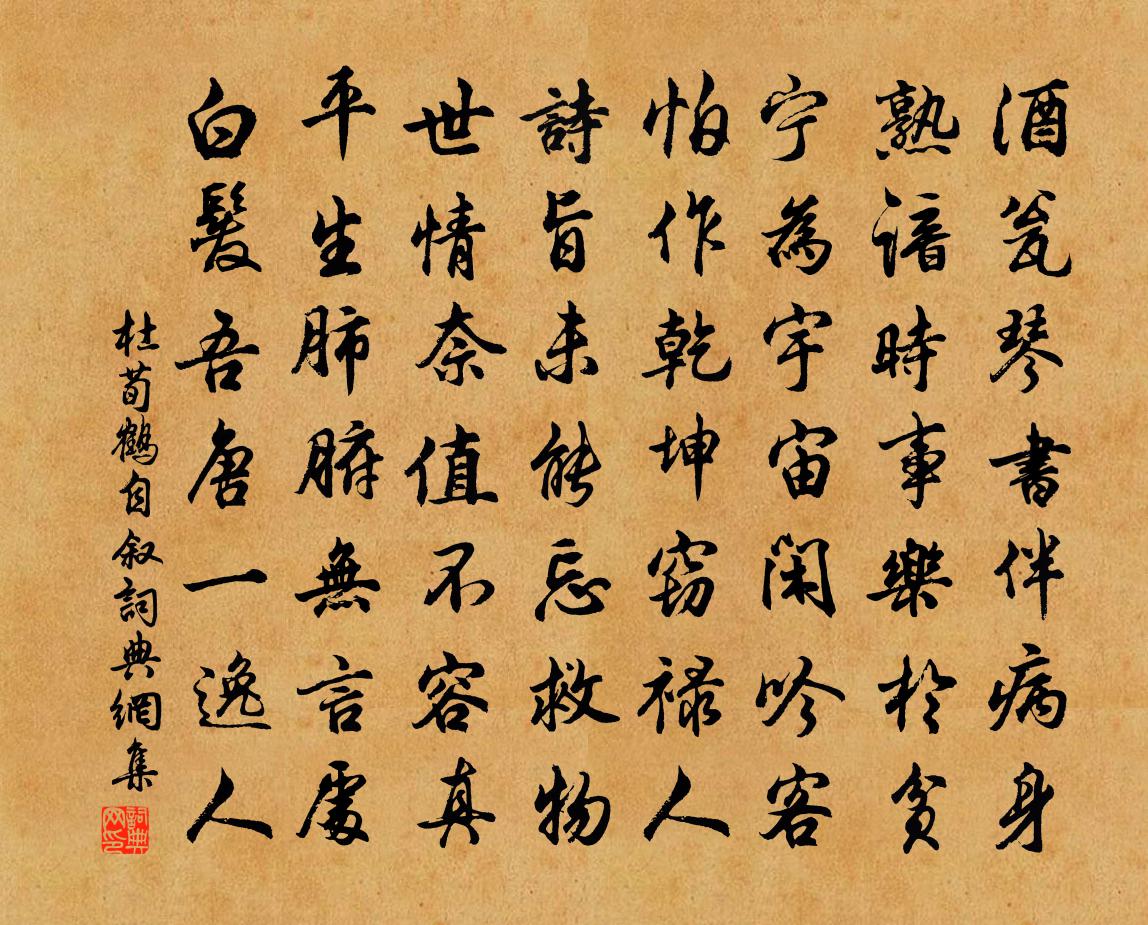 酒瓮琴書伴病身
熟諳時事樂於貧
宁為宇宙閑吟客
怕作乾坤竊禄人
詩旨未能忘救物
世情奈值不容真
平生肺腑無言處
白髮吾唐一逸人
杜荀鶴自叙詞典網集
詞典网印